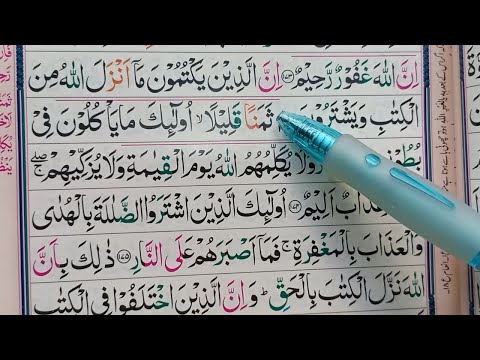 اِنَّ اللّٰهَ غَفُوْرٌ رَّحِيْمٌ ﴿۱۷۳﴾ اِنَّ الَّذِيْنَ يَكْتُمُوْنَ مَاۤ اَنْزَلَ اللّٰهُ مِنَ
الْكِتٰبِ وَيَشْتَرُوْنَ ثَمَنًا قَلِيْلًا ۙ اُولٰٓئِكَ مَا يَاْكُلُوْنَ فِيْ
وَلَا يُكَلِّمُهُمُ اللّٰهُ يَوْمَ الْقِيٰمَةِ وَلَا يُزَكِّيْهِمْ ۖۚ
عَذَابٌ اَلِيْمٌ ﴿۱۷۴﴾ اُولٰٓئِكَ الَّذِيْنَ اشْتَرَوُا الضَّلٰلَةَ بِالْهُدٰى
وَالْعَذَابَ بِالْمَغْفِرَةِ ۚ فَمَاۤ اَصْبَرَهُمْ عَلَى النَّارِ ﴿۱۷۵﴾ ذٰلِكَ بِاَنَّ
اللّٰهَ نَزَّلَ الْكِتٰبَ بِالْحَقِّ ؕ وَاِنَّ الَّذِيْنَ اخْتَلَفُوْا فِي الْكِتٰبِ